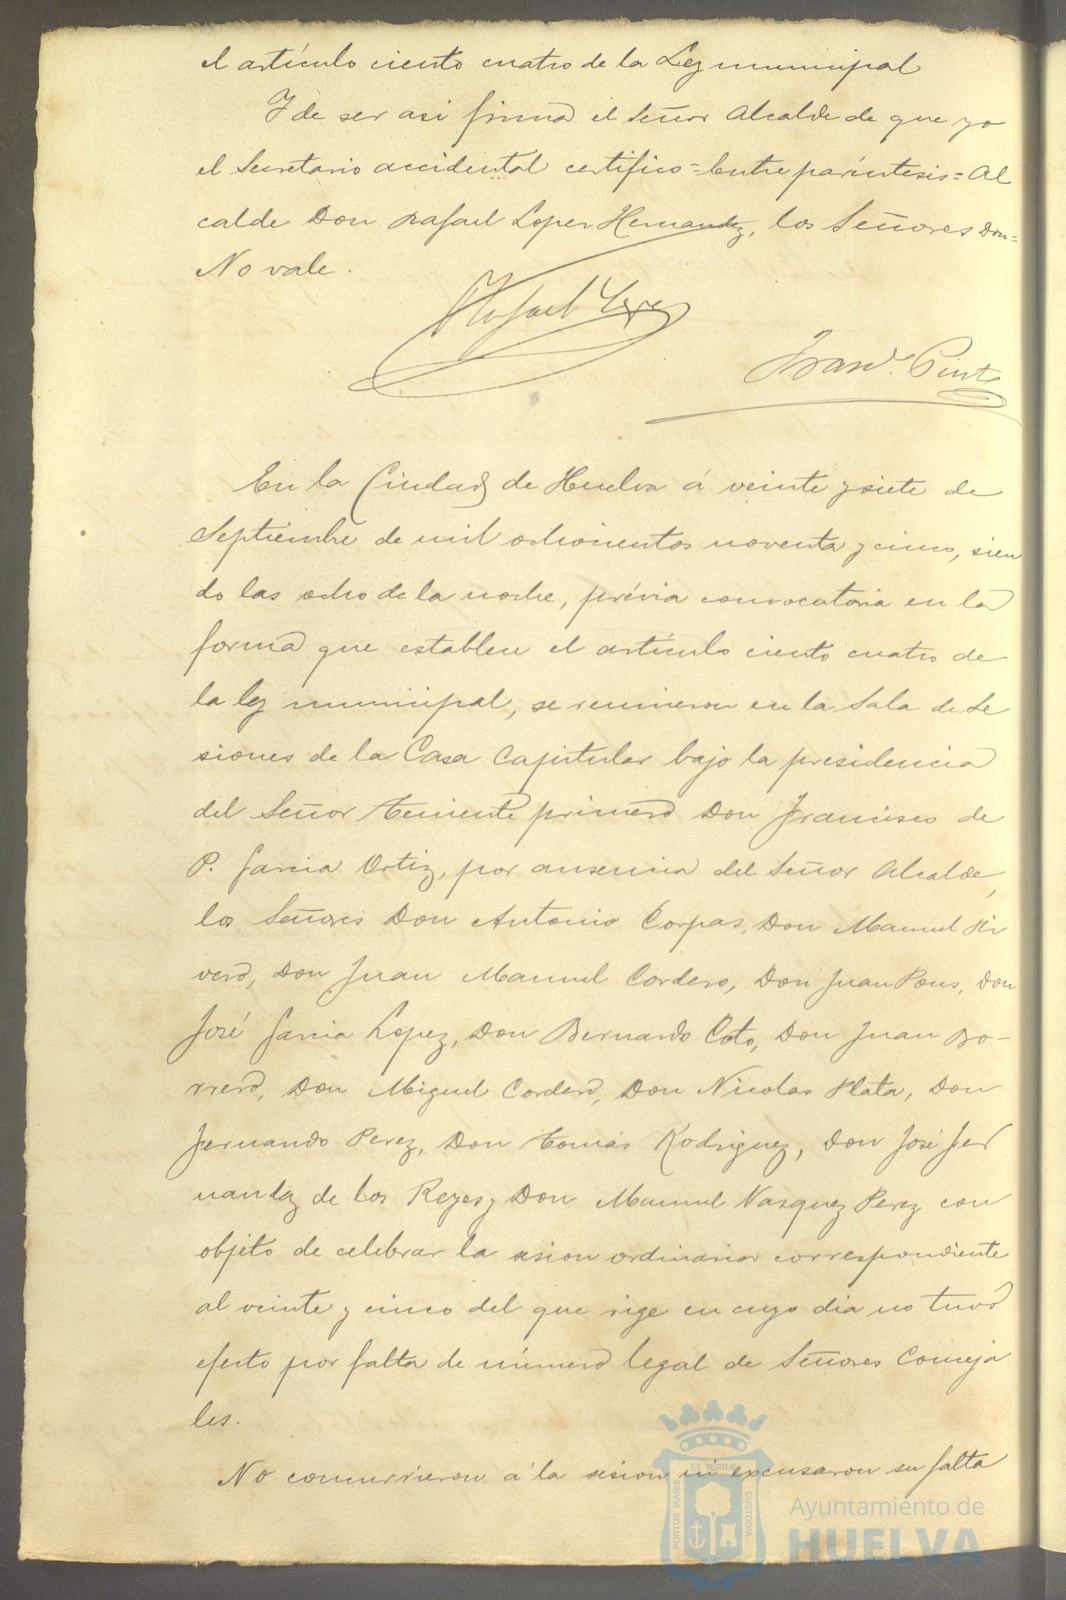 el artículo ciento cuatro de la Ley municipal
Y de ser asi firma el Señor Alcalde de que yo
el Secretario accidental certifico=Entre paréntesis=Al
calde Don Rafael Lopez Hernandez, los Señores Don=
No vale.
Rafael Lopez
Franco. Pinto
En la Ciudad de Huelva á veinte y siete de
Septiembre de mil ochocientos noventa y cinco, sien
do las ocho de la noche, prévia convocatoria en la
forma que establece el artículo ciento cuatro de
la ley municipal, se reunieron en la Sala de Se
siones de la Casa Capitular bajo la presidencia
del Señor teniente primero Don Francisco de
P. Garcia Ortiz, por ausencia del Señor Alcalde,
los Señores Don Antonio Corpas, Don Manuel Ri
vero, Don Juan Manuel Cordero, Don Juan Pons, Don
José Garcia Lopez, Don Bernardo Coto, Don Juan Bo-
rrero, Don Miguel Cordero, Don Nicolas Plata, Don
Fernando Perez, Don Tomás Rodriguez, Don José Fer
nandez de los Reyes y Don Manuel Vasquez Perez con
objeto de celebrar la sesion ordinaria correspondiente
al veinte y cinco del que rige en cuyo dia no tuvo
efecto por falta de número legal de Señores Conceja
les.
No concurrieron á la sesion ni excusaron su falta
PORTUS MARIS ET TERRAE CUSTODIA
Ayuntamiento de
HUELVA